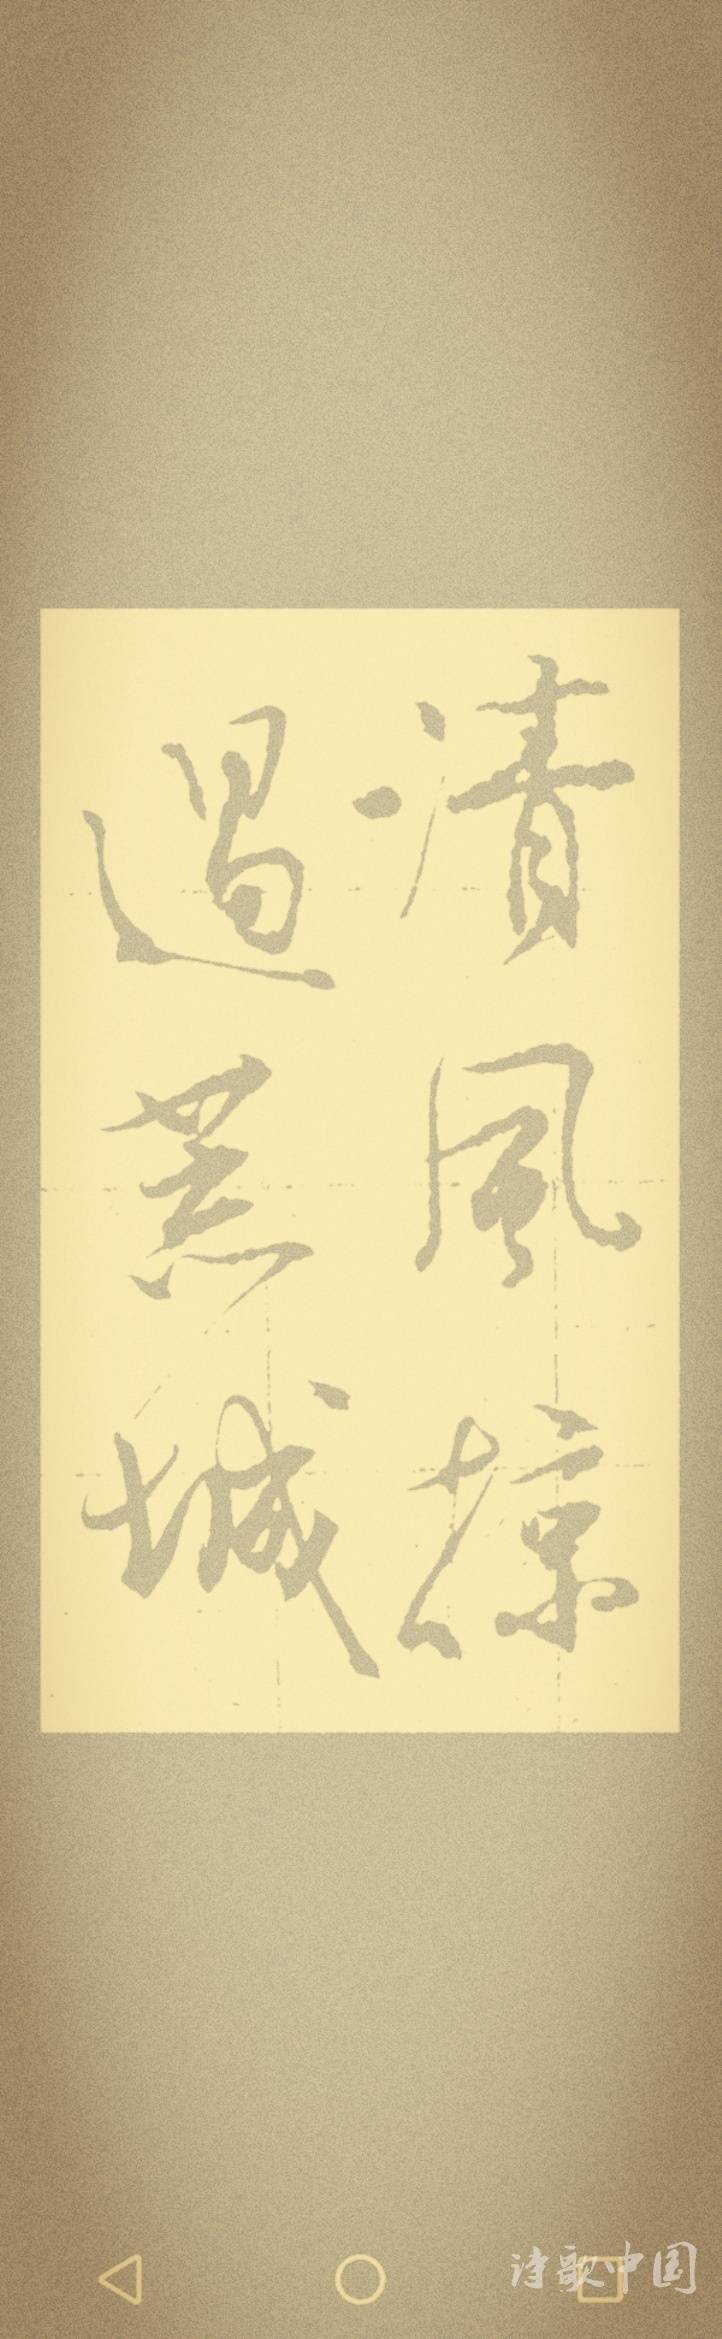 清風掠
過荒城
诗歌中国